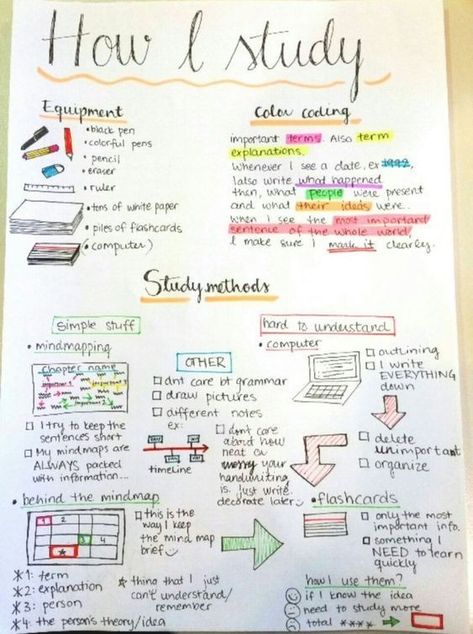 How I study
Equipment
• black pen
• colorful pens
• pencil
• eraser
• ruler
• tons of white paper
• piles of flashcards
( computer )
Color coding
important terms. Also term
explanations.
Whenever I see a date, ex 1992,
I also write what happened
then, what people were present
and what their ideas were.
When I see the most important
sentence of the whole world,
I make sure I mark it clearly.
Study methods
simple stuff
• mindmapping
Chapter name
important 1
important 2
important 3
I try to keep the
sentences short
My mindmaps are
ALWAYS packed
with information...
OTHER
dnt care bt grammar
draw pictures
different notes
ex:
timeline
dont care
about how
neat or
messy your
handwriting
is. just write
decorate later
hard to understand
• computer
outlining
I write
EVERYTHING
down
delete
unimportant
organize
• behind the mindmap
1
2
3
4
*
this is the
way I keep
the mind map
brief
*1: term
*2: explanation
*3: person
*4: the person's theory/idea
* thing that I just
can't understand/
remember
• flashcards
only the most
important info.
something I
NEED to learn
quickly
how I use them?
if I know the idea
need to study more
total ****